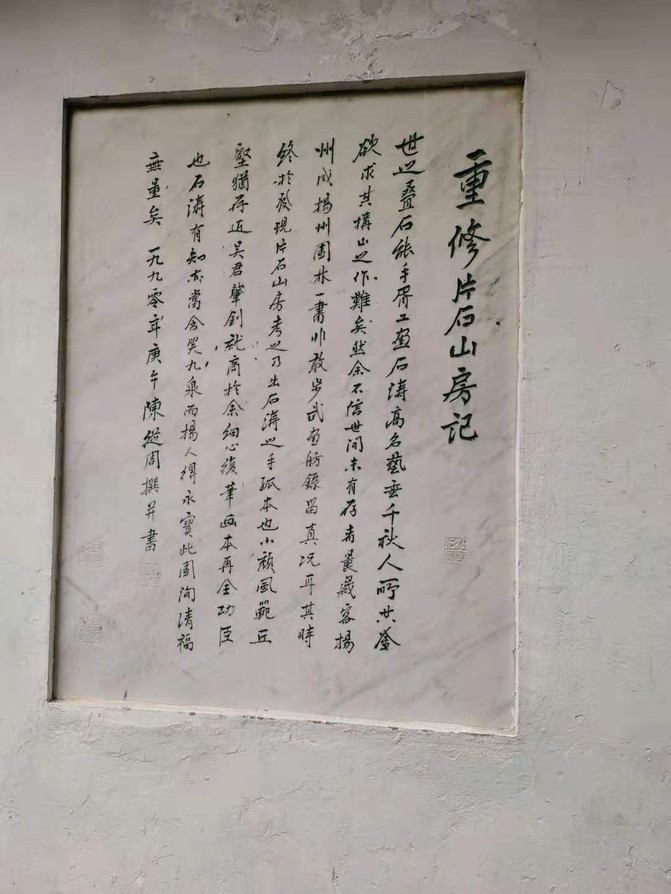 重修片石山房記
世之叠石能手胥工画石濤高名藝垂千秋人所共登
欲求其構山之作難矣然余不信世间未有存者曩歲客揚
州成揚州園林一書非敢步武画舫錄留真况耳其時
終於發現片石山房考之乃出石濤之手孤本也小頹風範丘
壑猶存近吴君肇釗就商於余细心復筆画本再全功臣
也石濤有知亦當含笑九泉而揚人得永寶此園洵清福
無量矣 一九九零年庚午陳從周撰并書